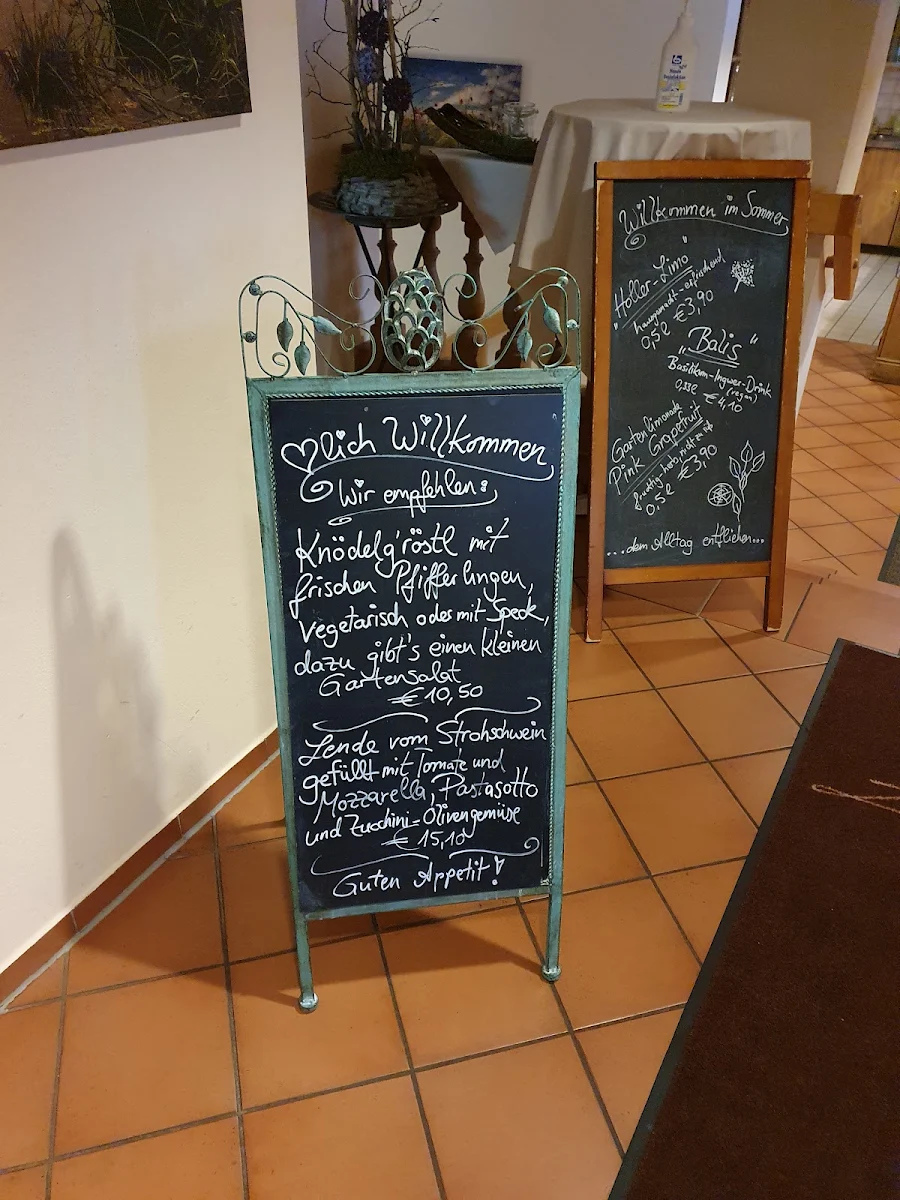 ♡lich Willkommen
Wir empfehlen:
Knödelg'röstl mit
frischen Pfifferlingen,
Vegetarisch oder mit Speck,
dazu gibt's einen kleinen
Gartensalat
€ 10,50
Lende vom Strohschwein
gefüllt mit Tomate und
Mozzarella, Pastasotto
und Zucchini-Olivengemüse
€ 15,10
Guten Appetit!
Willkommen im Sommer
"Holler-Limo"
hausgemacht-erfrischend
0,5l €3,90
"Balis"
Basilikum-Ingwer-Drink
(vegan)
0,33l €4,10
Gartenlimonade
Pink Grapefruit
fruchtig herb, nicht zu süß
0,5l €3,90
...dem Alltag entfliehen...